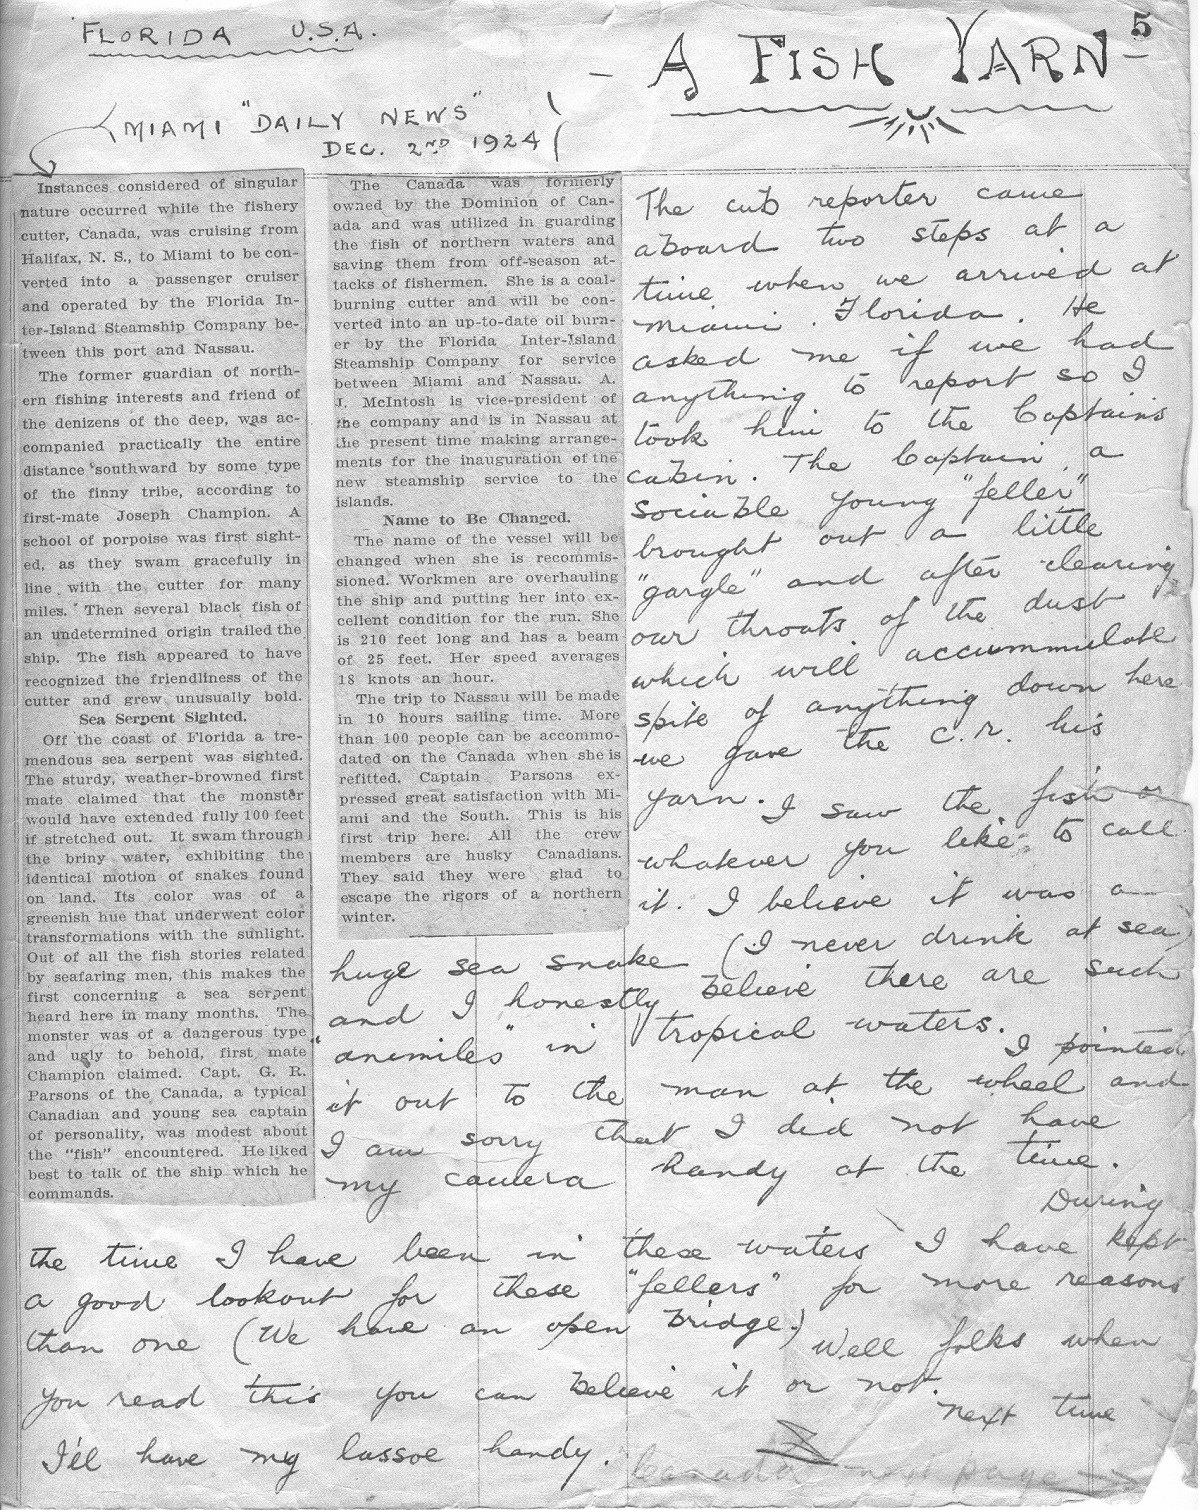 FLORIDA U.S.A.
5
- A FISH YARN -
MIAMI "DAILY NEWS"
DEC. 2ND 1924
Instances considered of singular
nature occurred while the fishery
cutter, Canada, was cruising from
Halifax, N. S., to Miami to be con-
verted into a passenger cruiser
and operated by the Florida In-
ter-Island Steamship Company be-
tween this port and Nassau.
The former guardian of north-
ern fishing interests and friend of
the denizens of the deep, was ac-
companied practically the entire
distance southward by some type
of the finny tribe, according to
first-mate Joseph Champion. A
school of porpoise was first sight-
ed, as they swam gracefully in
line with the cutter for many
miles. Then several black fish of
an undetermined origin trailed the
ship. The fish appeared to have
recognized the friendliness of the
cutter and grew unusually bold.
Sea Serpent Sighted.
Off the coast of Florida a tre-
mendous sea serpent was sighted.
The sturdy, weather-browned first
mate claimed that the monster
would have extended fully 100 feet
if stretched out. It swam through
the briny water, exhibiting the
identical motion of snakes found
on land. Its color was of a
greenish hue that underwent color
transformations with the sunlight.
Out of all the fish stories related
by seafaring men, this makes the
first concerning a sea serpent
heard here in many months. The
monster was of a dangerous type
and ugly to behold, first mate
Champion claimed. Capt. G. R.
Parsons of the Canada, a typical
Canadian and young sea captain
of personality, was modest about
the "fish" encountered. He liked
best to talk of the ship which he
commands.
The Canada was formerly
owned by the Dominion of Can-
ada and was utilized in guarding
the fish of northern waters and
saving them from off-season at-
tacks of fishermen. She is a coal-
burning cutter and will be con-
verted into an up-to-date oil burn-
er by the Florida Inter-Island
Steamship Company for service
between Miami and Nassau. A.
J. McIntosh is vice-president of
the company and is in Nassau at
the present time making arrange-
ments for the inauguration of the
new steamship service to the
islands.
Name to Be Changed.
The name of the vessel will be
changed when she is recommis-
sioned. Workmen are overhauling
the ship and putting her into ex-
cellent condition for the run. She
is 210 feet long and has a beam
of 25 feet. Her speed averages
18 knots an hour.
The trip to Nassau will be made
in 10 hours sailing time. More
than 100 people can be accommo-
dated on the Canada when she is
refitted. Captain Parsons ex-
pressed great satisfaction with Mi-
ami and the South. This is his
first trip here. All the crew
members are husky Canadians.
They said they were glad to
escape the rigors of a northern
winter.
The cub reporter came
aboard two steps at a
time when we arrived at
Miami. Florida. He
asked me if we had
anything to report so I
took him to the Captains
cabin. The Captain, a
sociable young "feller"
brought out a little
"gargle" and after clearing
our throats of the dust
which will accummulate
spite of anything down here
we gave the C.R. his
yarn. I saw the fish or
whatever you like to call
it. I believe it was a
huge sea snake (I never drink at sea)
and I honestly believe there are such
"animiles" in tropical waters.
I pointed
it out to the man at the wheel and
I am sorry that I did not have
my camera handy at the time.
During
the time I have been in these waters I have kept
a good lookout for these "fellers" for more reasons
than one (We have an open bridge.)
Well folks when
you read this you can believe it or not.
Next time
I'll have my lassoe handy.
Canada next page